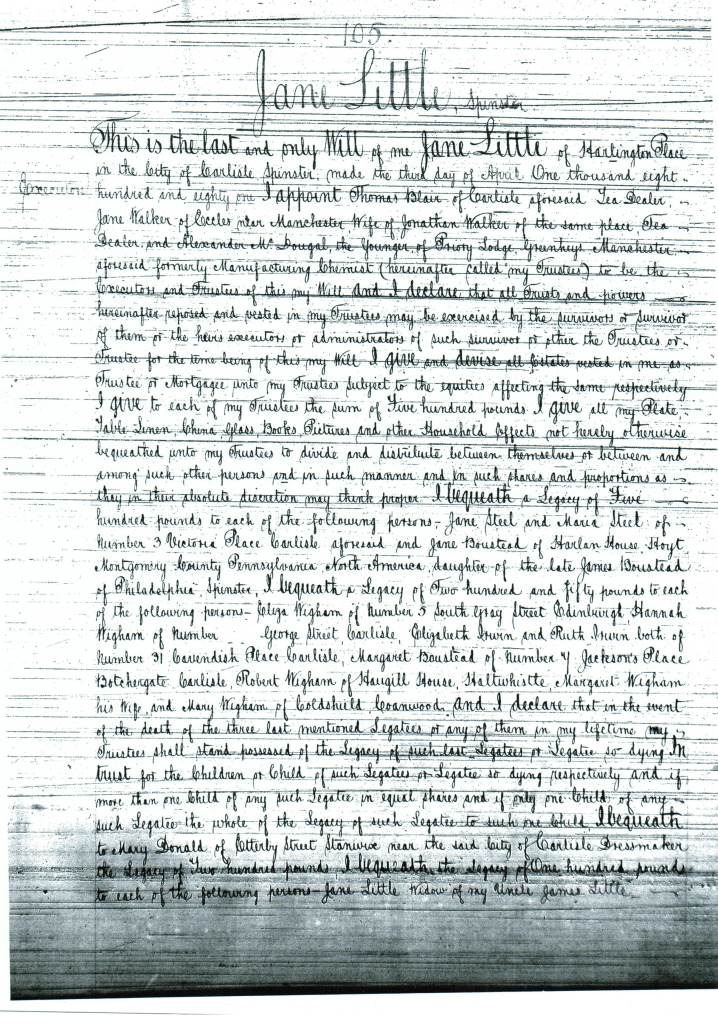 105.
Jane Little, Spinster
This is the last and only Will of me Jane Little of Hartington Place
in the City of Carlisle Spinster, made the third day of April One thousand eight
hundred and eighty one I appoint Thomas Blair of Carlisle aforesaid Tea Dealer,
Jane Walker of Eccles near Manchester Wife of Jonathan Walker of the same place Tea
Dealer, and Alexander McDougal the Younger of Priory Lodge, Greenheys, Manchester
aforesaid formerly Manufacturing Chemist (hereinafter called "my Trustees) to be the
Executors and Trustees of this my Will and I declare that all Trusts and powers
hereinafter reposed and vested in my Trustees may be exercised by the survivors or survivor
of them or the heirs executors or administrators of such survivor or other the Trustees or
Trustee for the time being of this my Will I give and devise all Estates vested in me as
Trustee or Mortgagee unto my Trustees subject to the equities affecting the same respectively
I give to each of my Trustees the sum of Five hundred pounds I give all my Plate
Table Linen, China Glass, Books, Pictures and other Household Effects not hereby otherwise
bequeathed unto my Trustees to divide and distribute between themselves or between and
among such other persons and in such manner and in such shares and proportions as
they in their absolute discretion may think proper I bequeath a Legacy of Five
hundred pounds to each of the following persons – Jane Steel and Maria Steel of
Number 3 Victoria Place Carlisle aforesaid and Jane Boustead of Harlan House Hoyt
Montgomery County Pennsylvania North America, daughter of the late James Boustead
of Philadelphia Spinster, I bequeath a Legacy of Two hundred and fifty pounds to each
of the following persons – Eliza Wigham of Number 5 South Gray Street Edinburgh, Hannah
Wigham of Number George Street Carlisle, Elizabeth Irwin and Ruth Irwin both of
Number 31 Cavendish Place Carlisle, Margaret Boustead of Number 4 Jackson's Place
Botchergate Carlisle Robert Wigham of Haugill House, Haltwhistle, Margaret Wigham
his Wife, and Mary Wigham of Coldshield Coanwood. And I declare that in the event
of the death of the three last mentioned Legatees or any of them in my lifetime my
Trustees shall stand possessed of the Legacy of such last Legatees or Legatee so dying In
trust for the Children or Child of such Legatees or Legatee so dying respectively and if
more than one Child of any such Legatee in equal shares and if only one Child of any
such Legatee the whole of the Legacy of such Legatee to such one Child I bequeath
to Mary Donald of Etterby Street Stanwix near the said City of Carlisle Dressmaker
the Legacy of Two hundred pounds I bequeath the Legacy of One hundred pounds
to each of the following persons – Jane Little Widow of my Uncle James Little